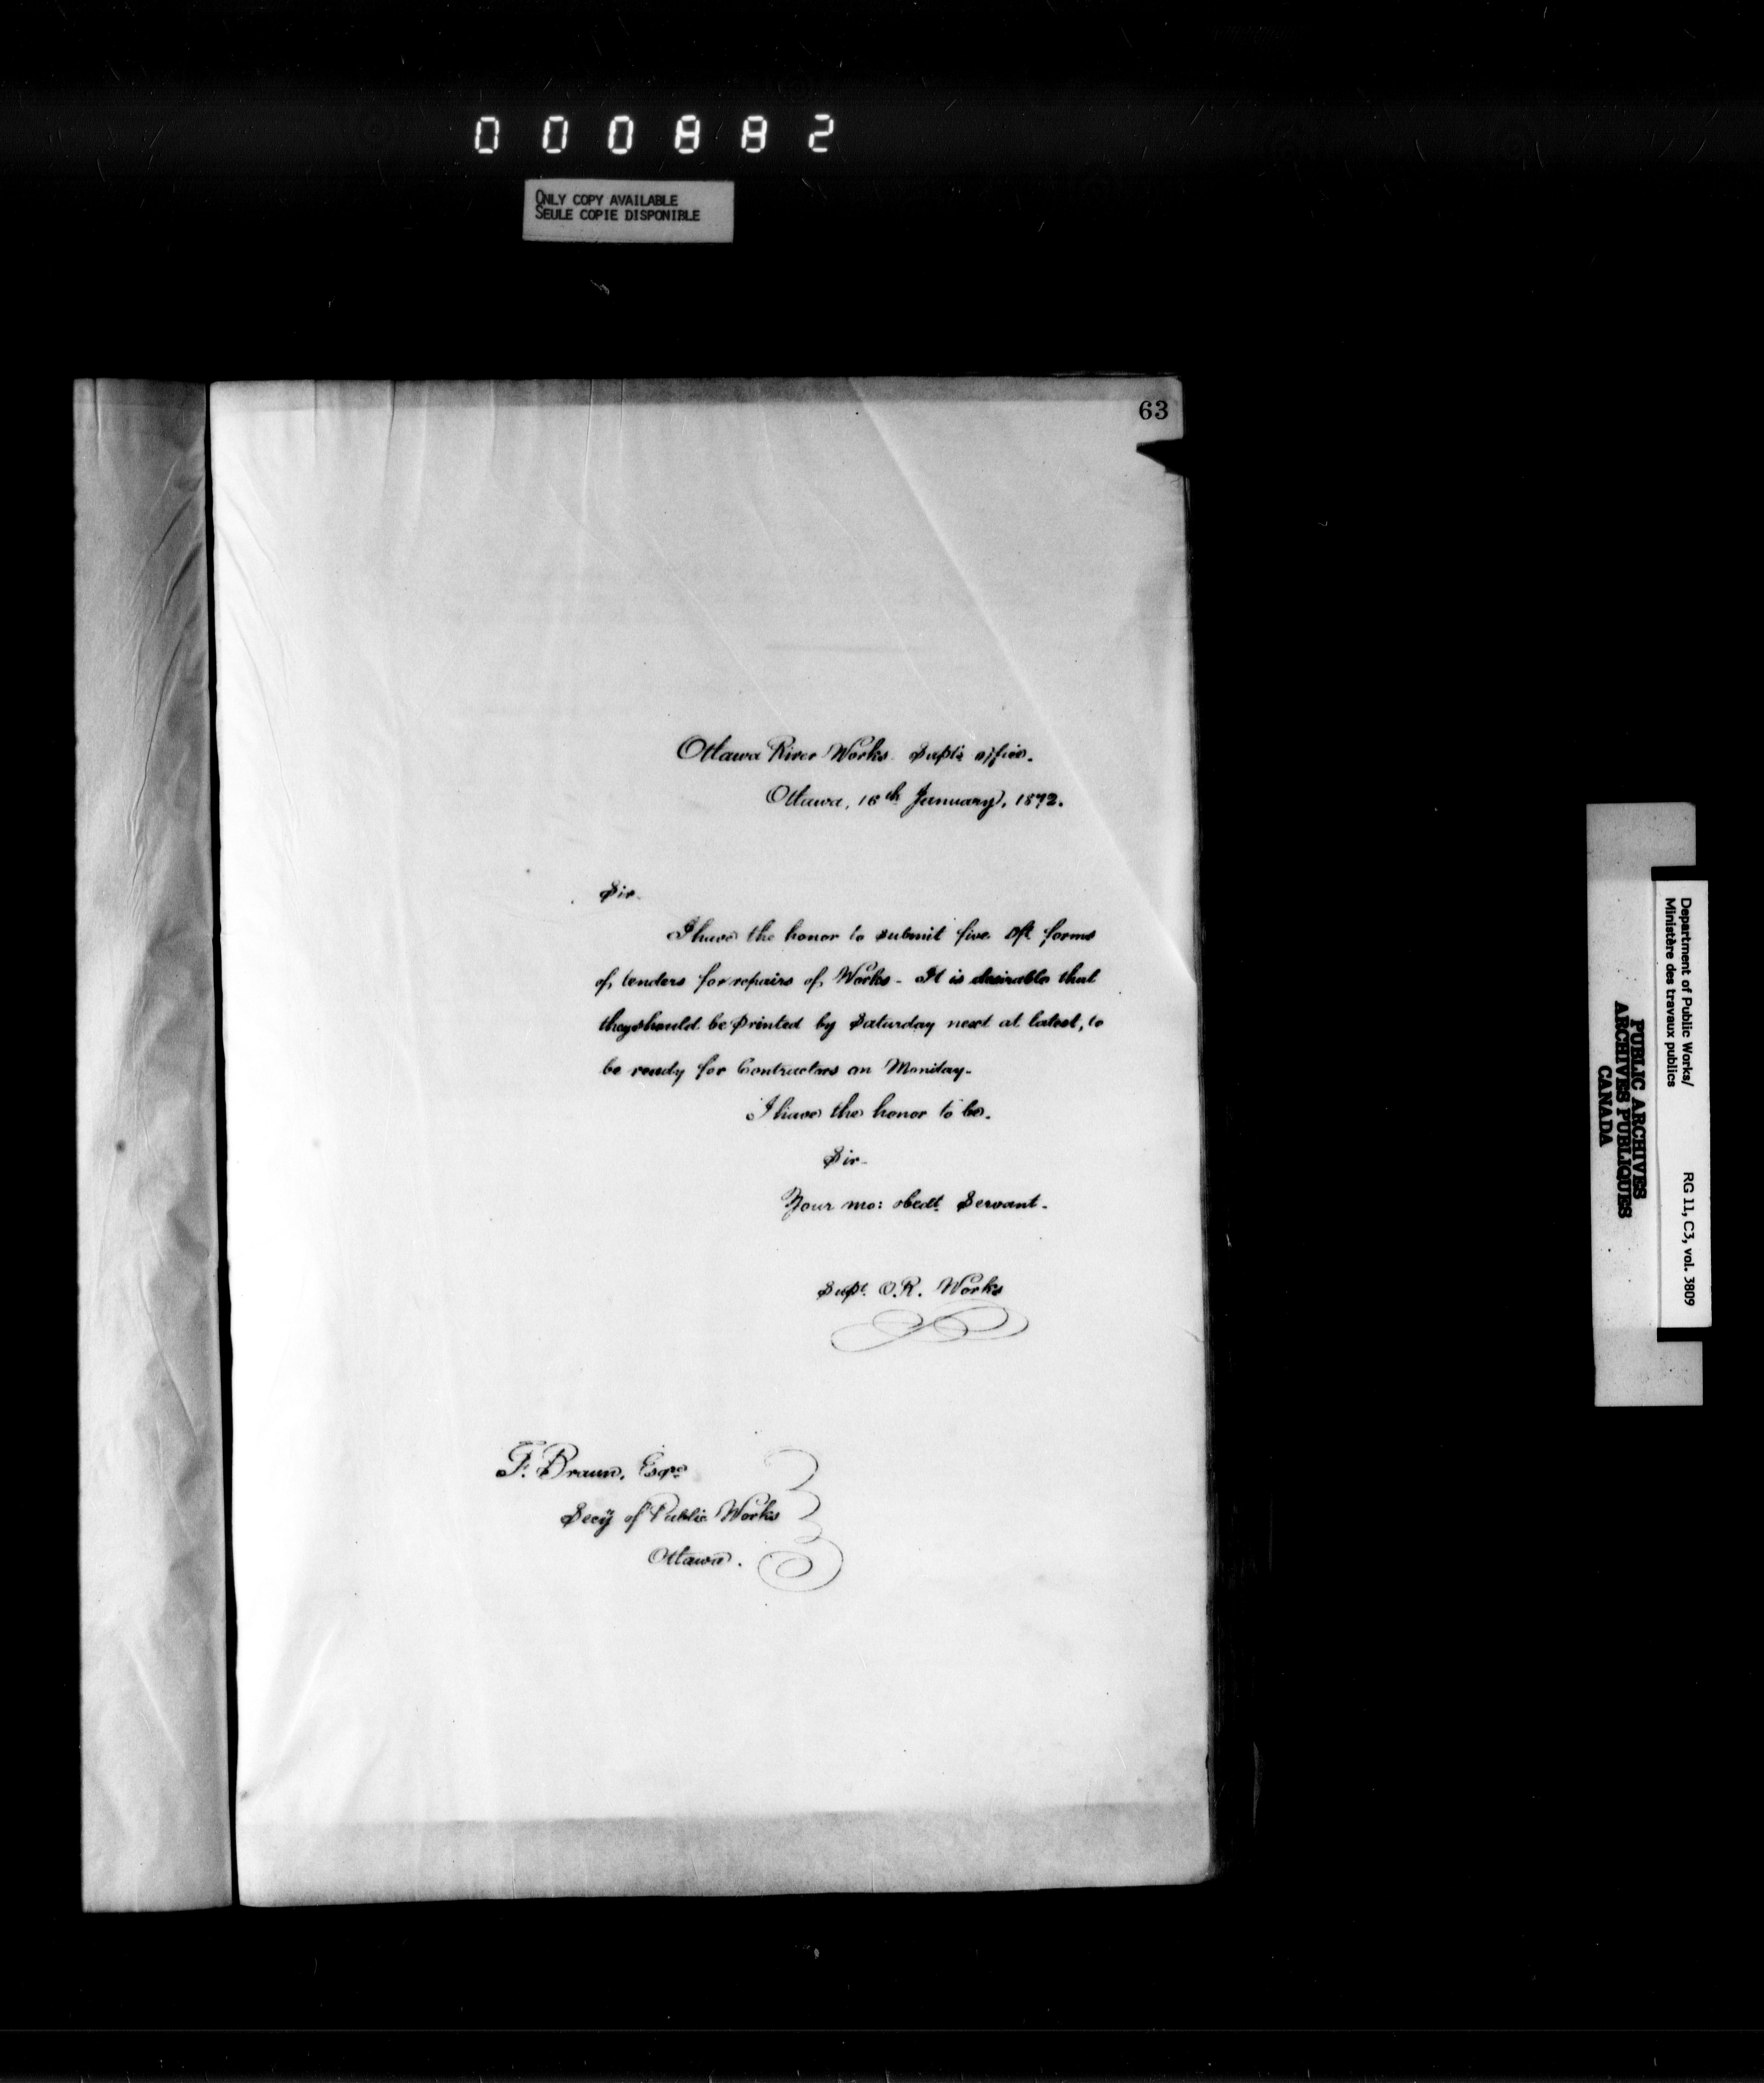 000882
ONLY COPY AVAILABLE
SEULE COPIE DISPONIBLE
63
Ottawa River Works Supt's office.
Ottawa, 16th January, 1872.
Sir
I have the honor to submit five dft forms
of tenders for repairs of Works - It is desirable that
they should be printed by Saturday next at latest, to
be ready for Contractors on Monday -
I have the honor to be.
Sir -
Your mo: obedt Servant -
Supt. O.R. Works
F. Braun, Esqre
Secy of Public Works
Ottawa.
Department of Public Works/
Ministère des travaux publics
RG 11, C3, vol. 3809
PUBLIC ARCHIVES
ARCHIVES PUBLIQUES
CANADA